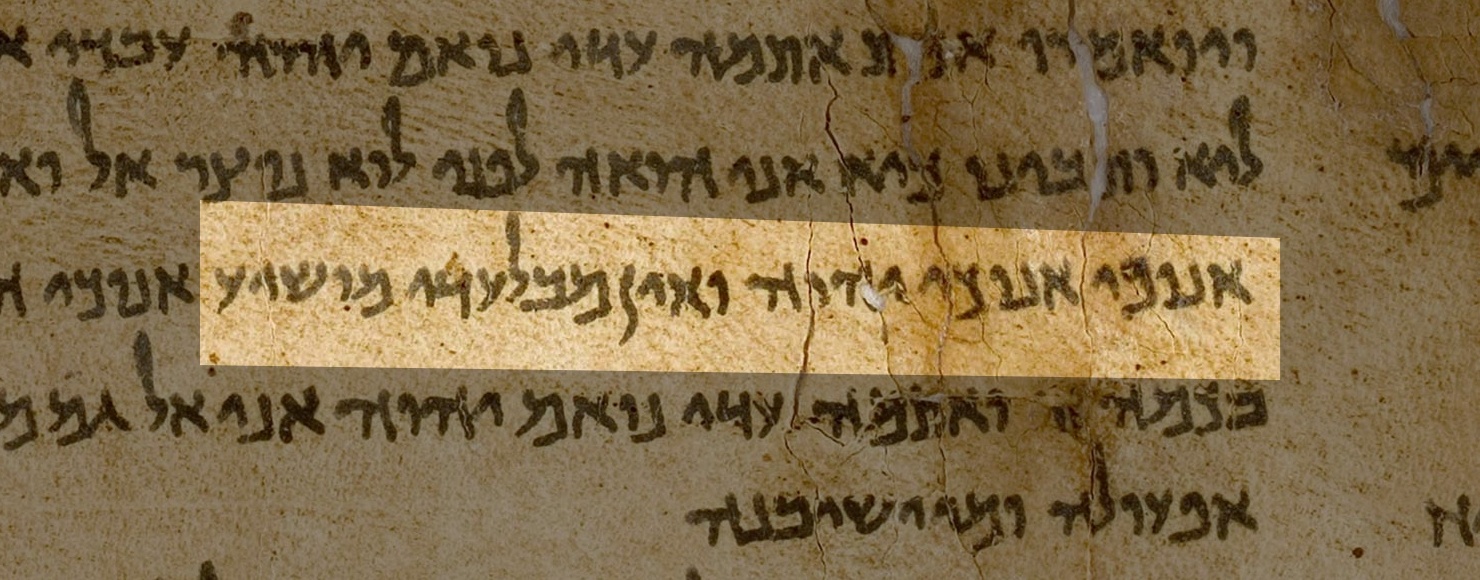 ויואמרו אמת אתמה עדי נואם יהוה עבדי
ליא ותבינו כיא אני הואה לפני לוא נוצר אל
אנוכי אנוכי יהוה ואין מבלעדי מושיע אנוכי
בכמה זר ואתמה עדי נואם יהוה אני אל גם
אפעולה ומי ישיבנה